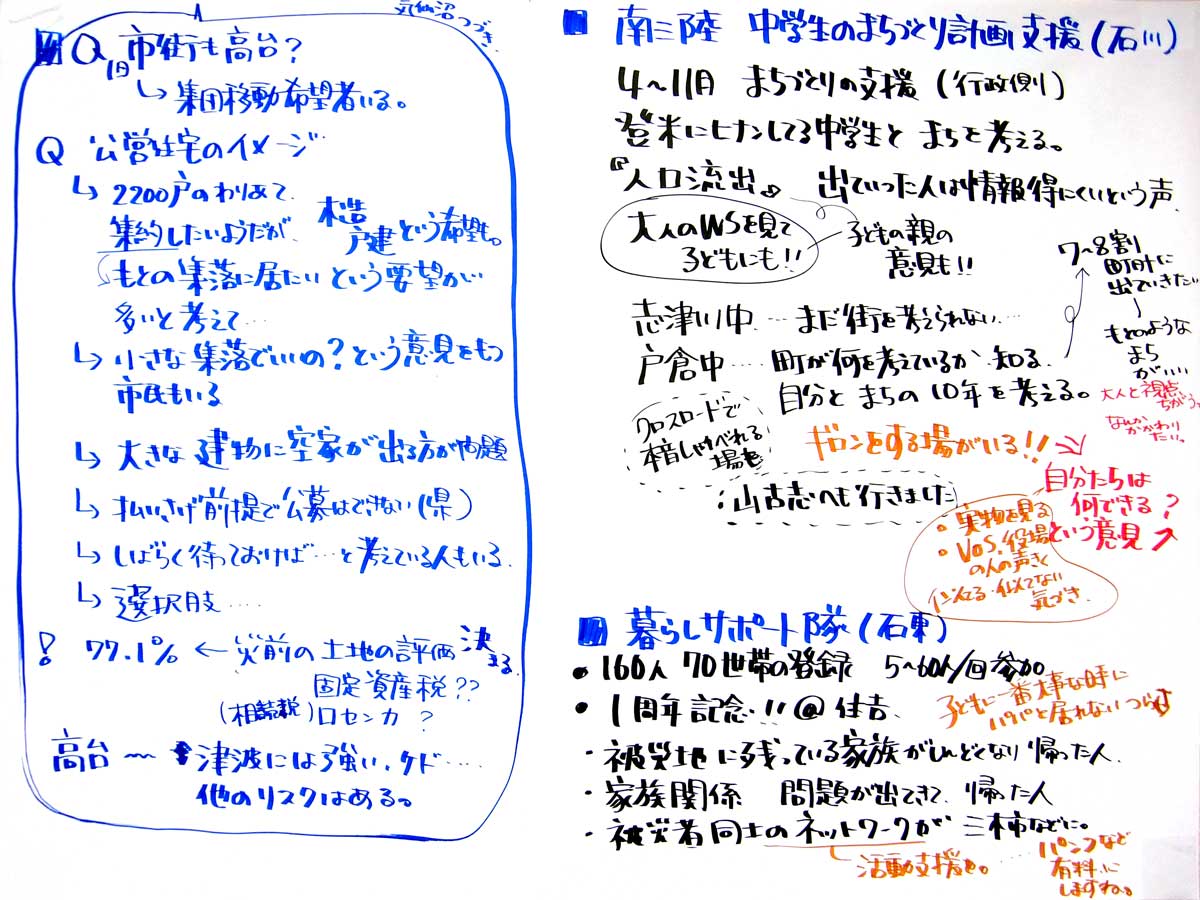 気仙沼つづき
Q 旧市街も高台?
↳ 集団移動希望者いる。
Q 公営住宅のイメージ
↳ 2200戸のわりあて、
集約したいようだが、木造戸建という希望も。
もとの集落に居たいという要望が
多いと考えて……
↳ 小さな集落でいいの?という意見をもつ
市民もいる
↳ 大きな建物に空家が出る方が問題
↳ 払いさげ前提で公募はできない(県)
↳ しばらく待っておけば…と考えている人もいる
↳ 選択肢……
! 77.1% ← 災前の土地の評価 決まる
固定資産税??
(相続税)ロセンカ?
高台〜 津波には強い、ケド……
他のリスクはある。
南三陸 中学生のまちづくり計画支援(石川)
4〜11月 まちづくりの支援(行政側)
登米にヒナンしてる中学生と まちを考える。
『人口流出』 出ていった人は情報得にくいという声
大人のWSを見て
子どもにも!!
子どもの親の
意見も!!
志津川中…まだ街を考えられない…
戸倉中…町が何を考えているか 知る
自分とまちの10年を考える。
7〜8割
町外に
出ていきたい
もとのような
まち
がいい
大人と視点
ちがう。
なんか
かかわり
たい。
クロスロードで
本音しゃべれる
場を
ギロンをする場がいる!!
自分たちは
何できる?
という意見
:山古志へも行きました
・実物を見る
・VOS.役場
の人の声きく
似てる・似てない
気づき
暮らしサポート隊(石東)
・160人 70世帯の登録 5〜60人/回参加
・1周年記念!!@住吉
子どもに一番大事な時に
パパと居れないつらさ
・被災地に残っている家族がしんどくなり帰った人
・家族関係 問題が出てきて、帰った人
・被災者同士のネットワークが 三木市などに。
活動支援も。
パンフなど
有料に
しますね。